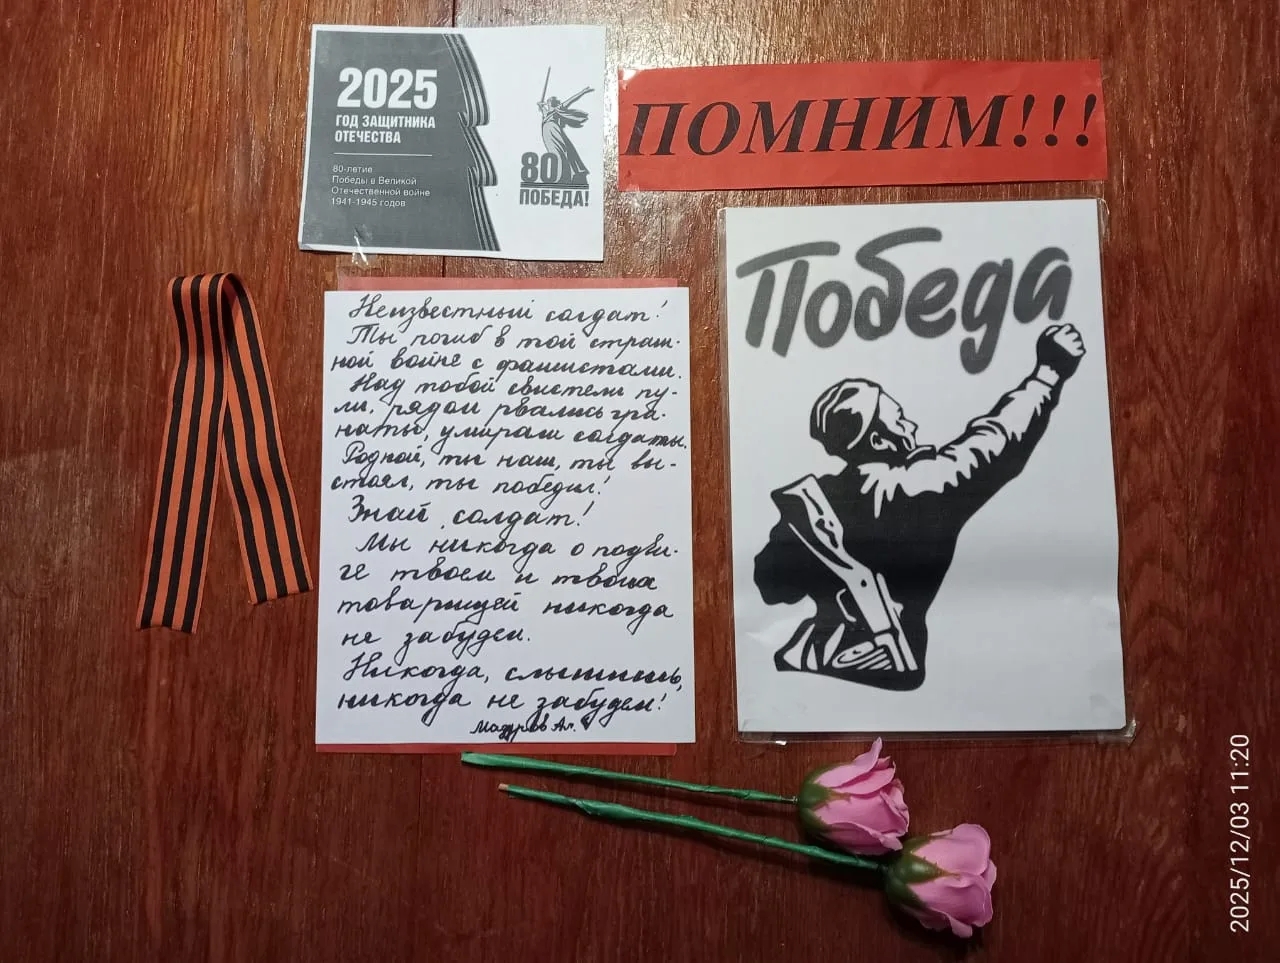 2025
ГОД ЗАЩИТНИКА
ОТЕЧЕСТВА
80-летие
Победы в Великой
Отечественной войне
1941-1945 годов
80
ПОБЕДА!
ПОМНИМ!!!
Победа
Неизвестный солдат!
Ты погиб в той страш-
ной войне с фашистами.
Над тобой свистели пу-
ли, рядом рвались гра-
наты, умирали солдаты.
Родной, ты наш, ты вы-
стоял, ты победил!
Знай, солдат!
Мы никогда о подви-
ге твоем и твоих
товарищей никогда
не забудем.
Никогда, слышишь,
никогда не забудем!
2025/12/03 11:20